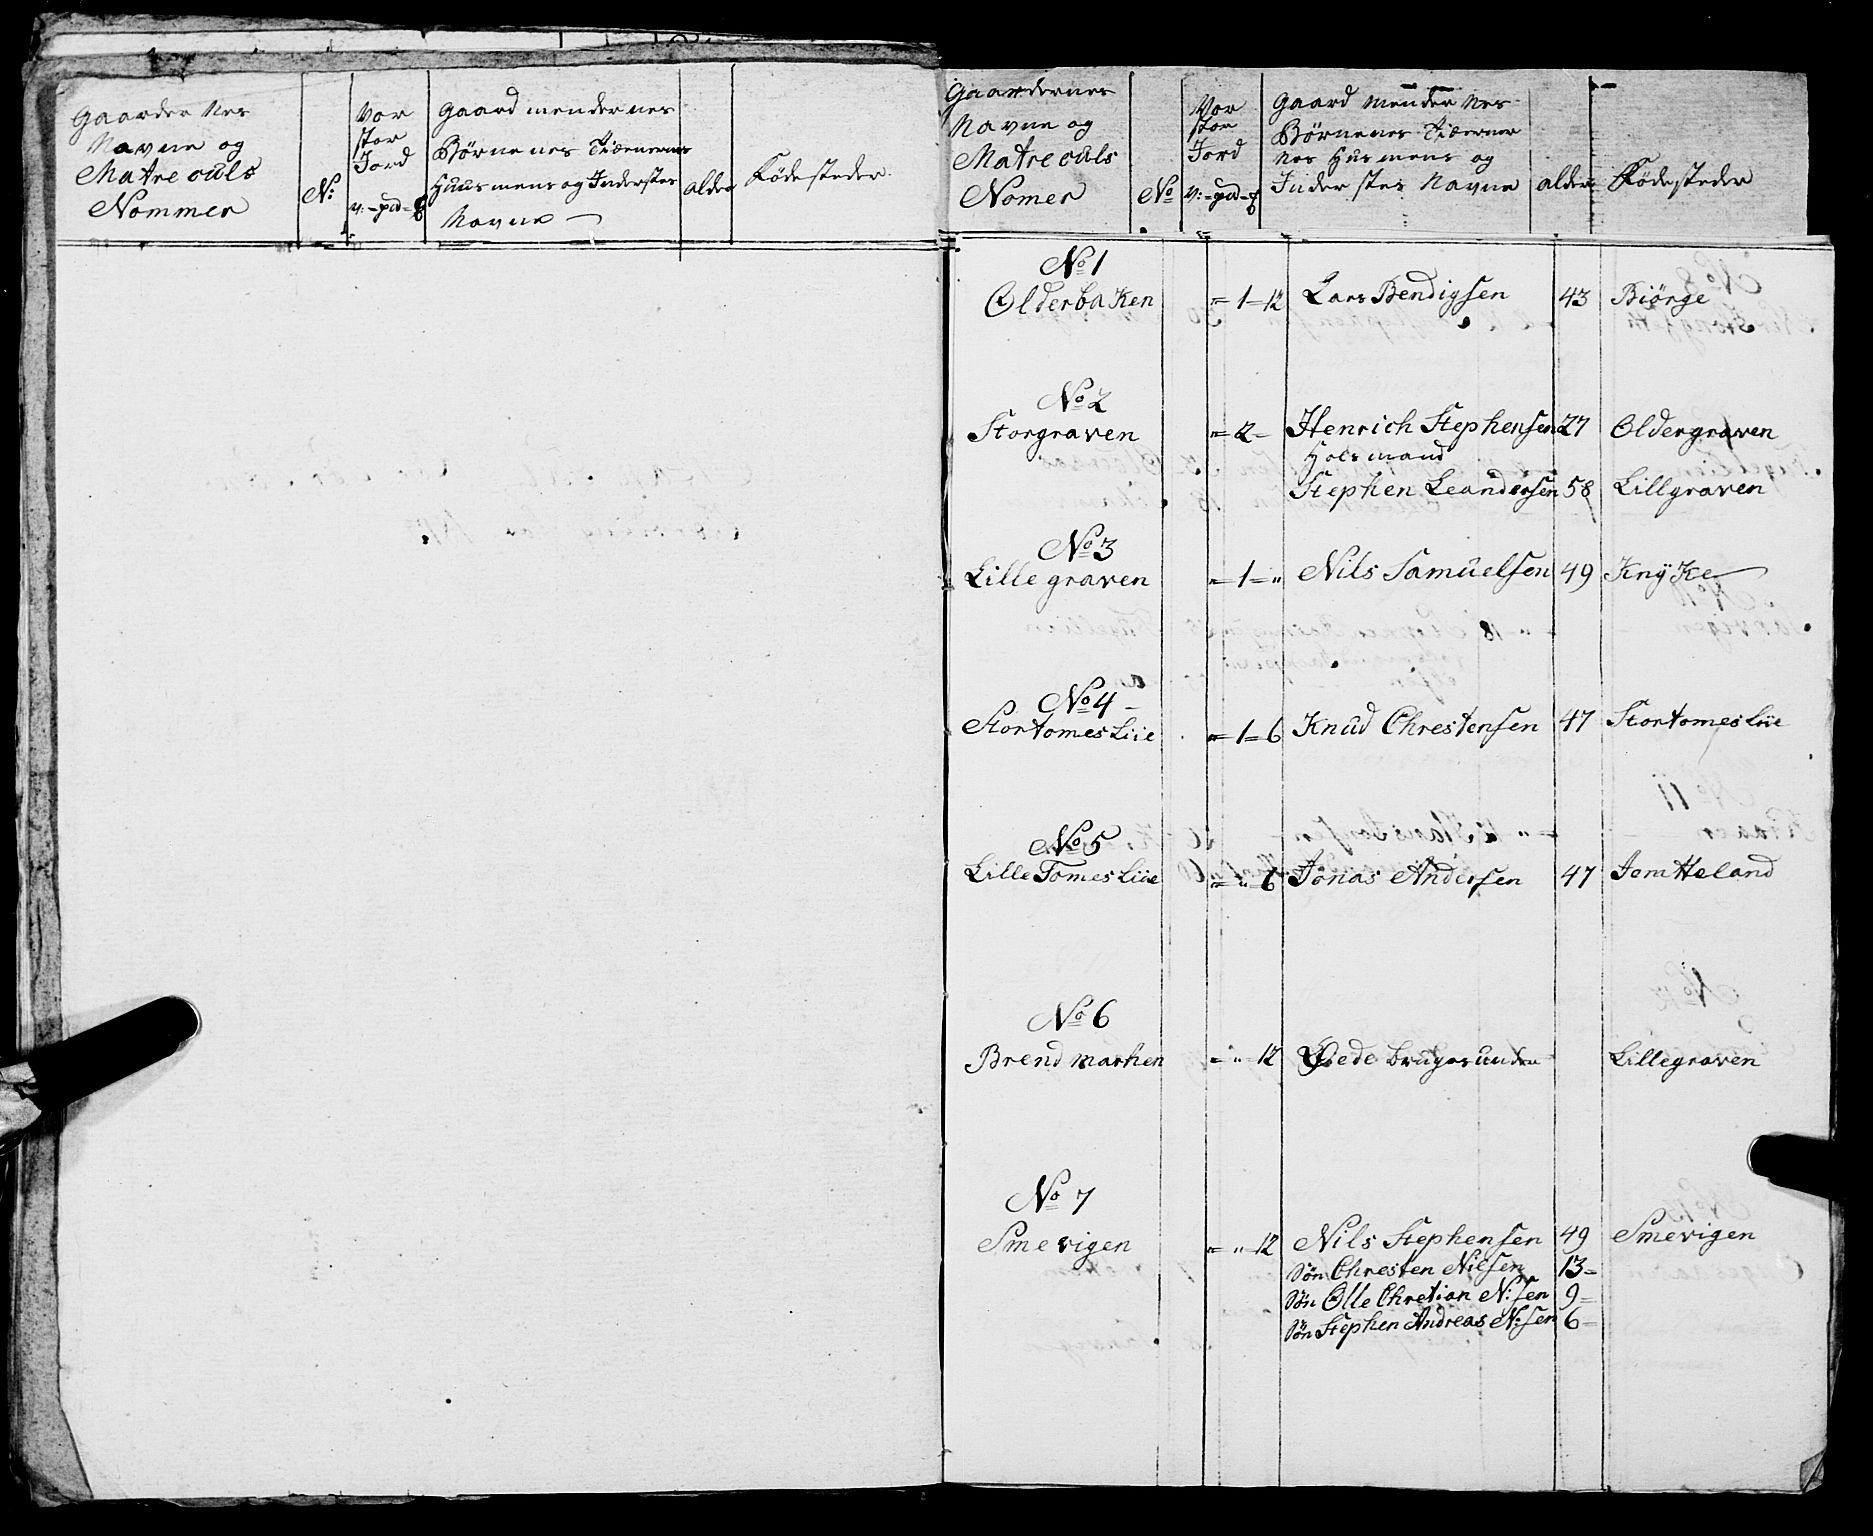 Gaardernes
Navne og
Matreculs
Nommer
No
Vor
stor
Jord
v:-pd-
Gaardmendernes
Börnenes Tiäenernes
Huusmens og Indersters
Navne
alder
Födesteder
Gaardernes
Navne og
Matreculs
Nomer
No
Vor
stor
Jord
v:-pd-
Gaardmendernes
Börnenes Tiäener
nes Husmens og
Inderstes Navne
alder
Födesteder
No 1
Olderbaken = 1 = 12 Lars Bendigsen 43 Biörge
No 2
Storgraven = 2 - Henrich Stephensen 27 Oldergraven
Holsmand
Stephen Leandersen 58 Lillgraven
No 3
Lille graven = 1 = " Nils Samuelsen 49 Knÿke
No 4
Stortomesliie = 1 = 6 Knud Chrestensen 47 Stortomesliie
No 5
Lille Tomesliie = " 6 Jonas Andersen 47 Jomtteland
No 6
Brendmarken = " 12 Öede bruges under Lillegraven
No 7
Smevigen = " 12 Nils Stephensen 49 Smevigen
Sön Chresten Nilsen 13 -
Sön Olle Chretian N:sen 9 -
Sön Stephen Andreas N:sen 6 -